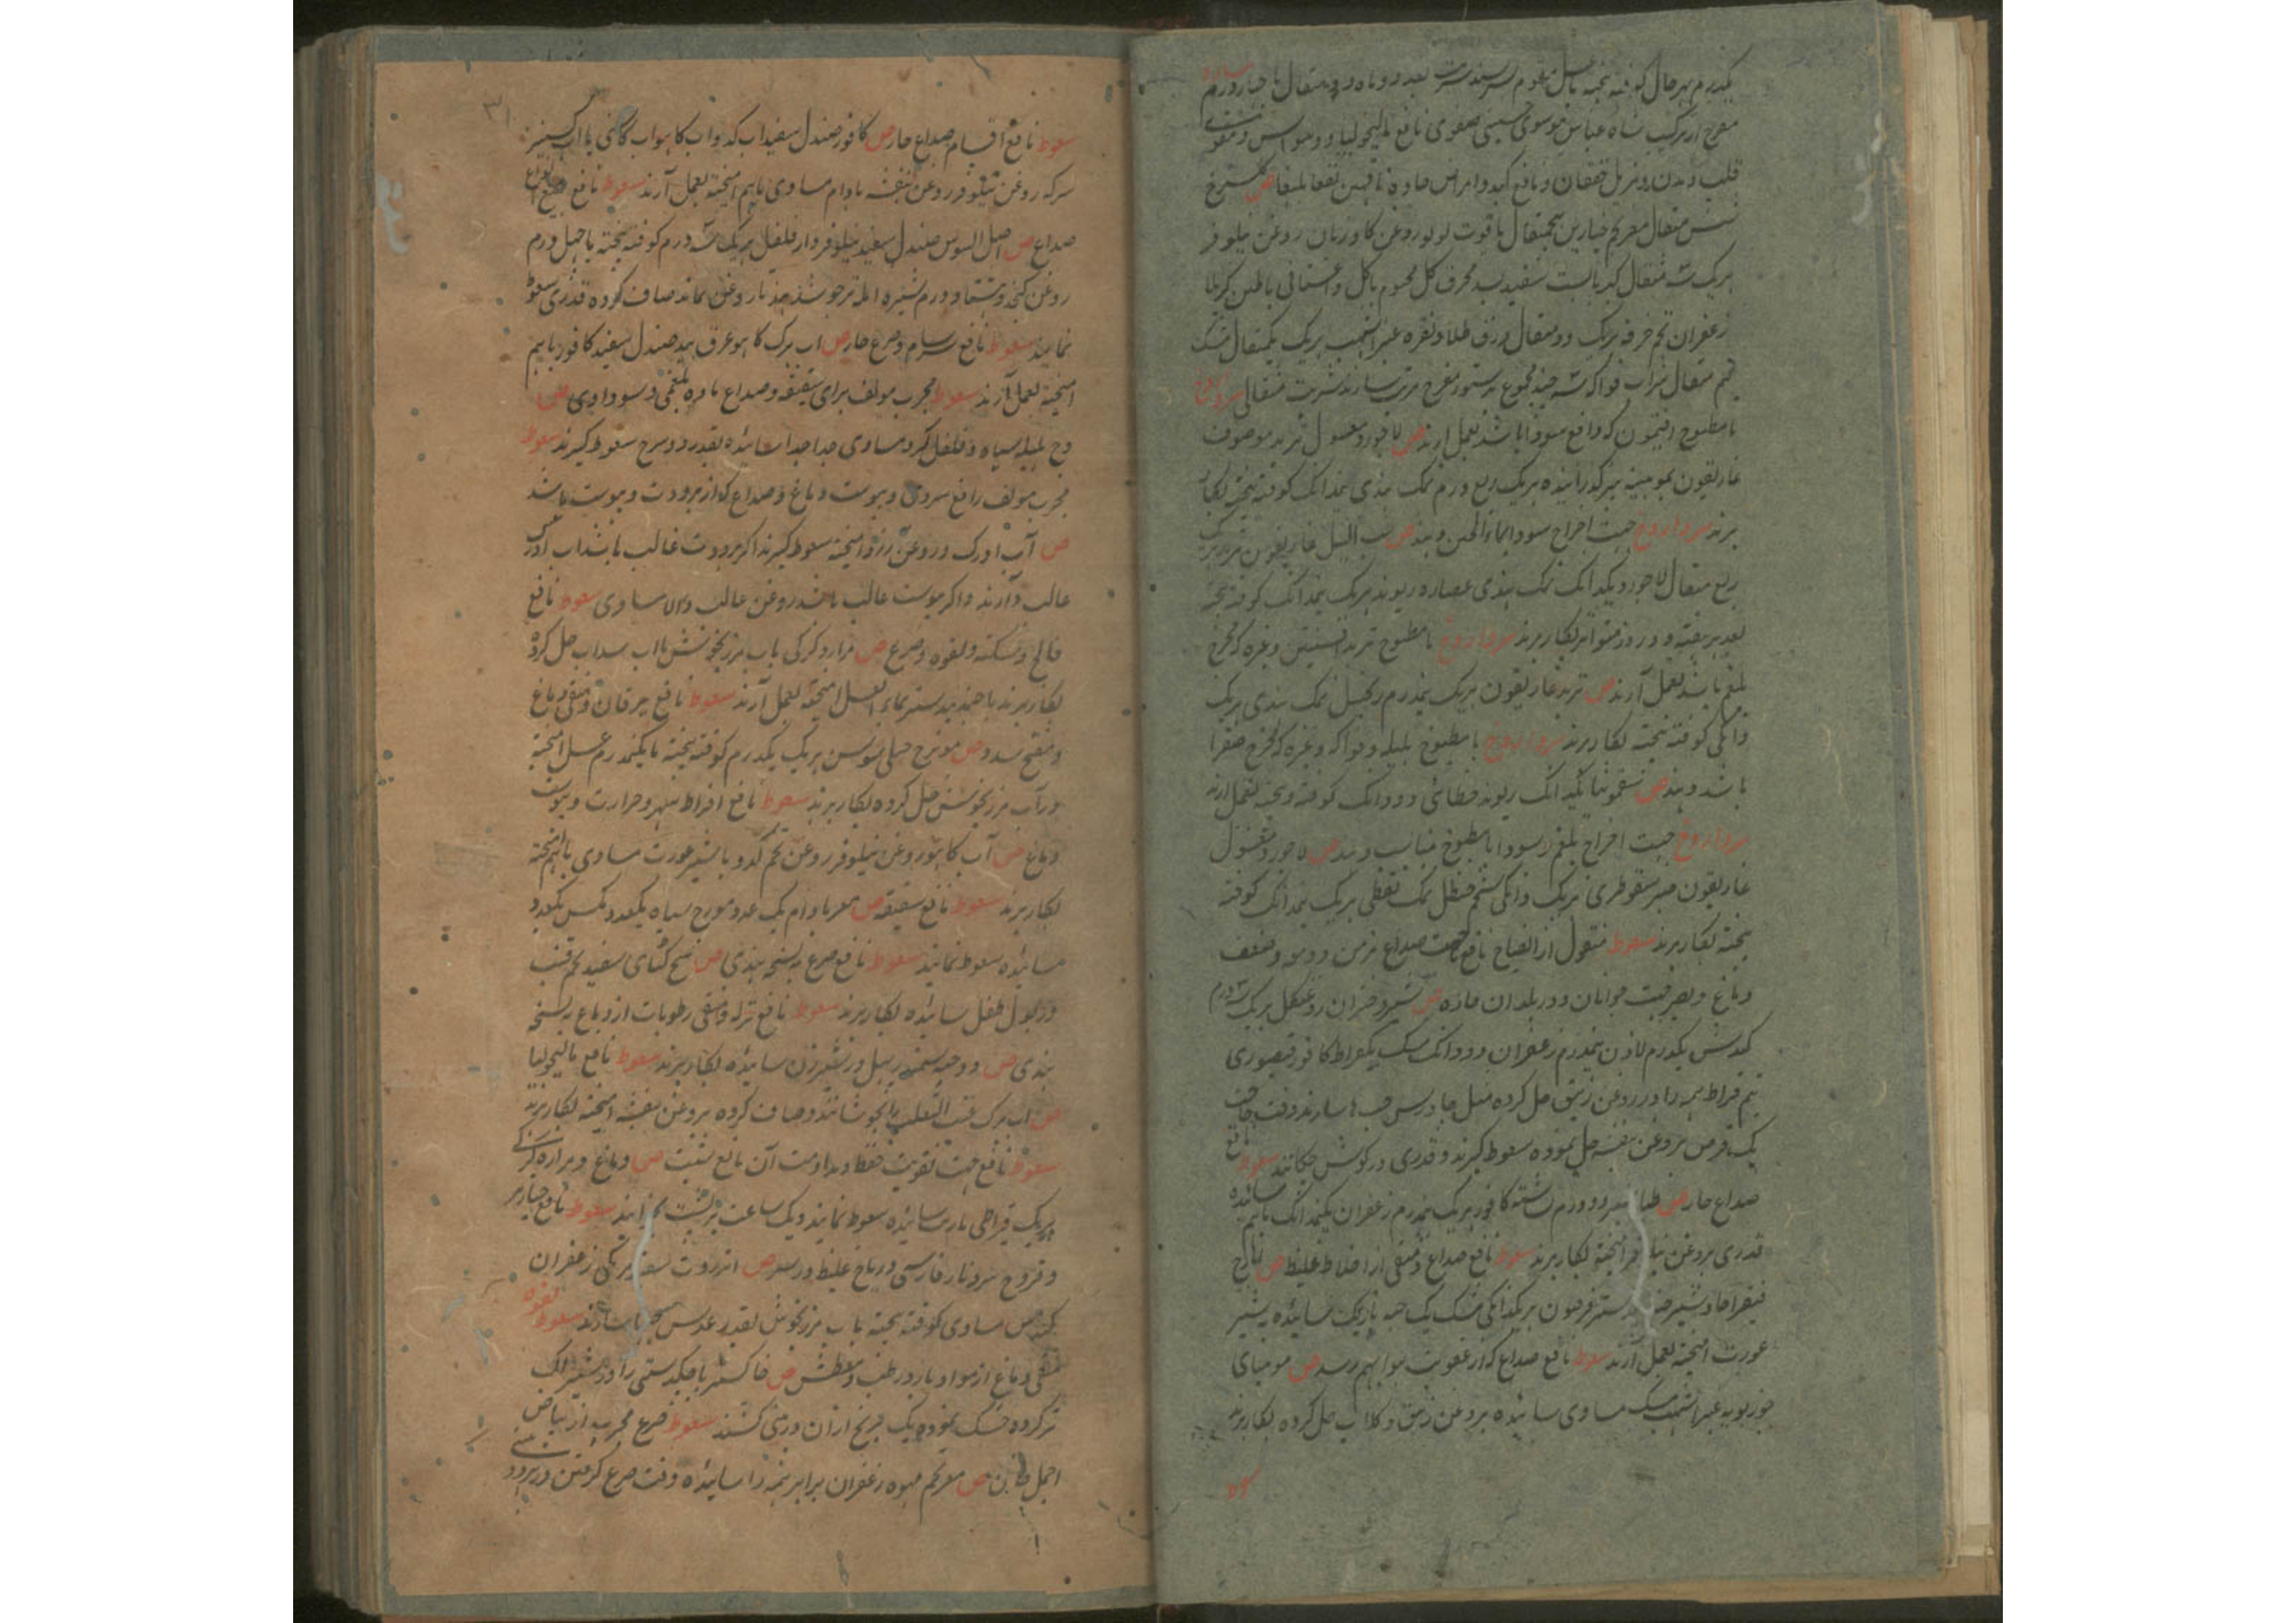 یکدرم بهر حال کوفته بیخته با عسل مقوم بسرشند شربت بعد دو ماه دو مثقال با
مفرح از ترکیب شاه عباس موسوی حسینی صفوی نافع مالیخولیا و وسواس و مقوی
قلب و بدن و مزیل خفقان و نافع کبد و امراض حاده ناقهین نفعا بلیغا ص گلسرخ
شش مثقال مغز تخم خیارین پنجمثقال یاقوت لولو روغن کاوزبان روغن نیلوفر
هریک سه مثقال کهربا بسد سفید بسد محرق کل مختوم یا کل داغستانی یا طین کربلا
زعفران تخم خرفه هریک دو مثقال ورق طلا و نقره عنبر اشهب هریک یکمثقال مشک
نیم مثقال شراب فواکه سه چند مجموع بدستور مفرح مرتب سازند شربت مثقالی سردارو
با مطبوخ افتیمون که دافع سودا باشد بعمل ارند ص لاجورد مغسول تربد موصوف
غاریقون بموبینه بیز کذرانیده هریک ربع درم نمک هندی نیمدانک کوفته بیخته بکار
برند سردارو جهت اخراج سودا بماء الجبن دهند ص حب النیل غاریقون تربد هریک
ربع مثقال لاجورد یکدانک نمک هندی عصاره ریوند هریک نیمدانک کوفته بیخته
بعد هر هفته دو روز متواتر بکار برند سردارو با مطبوخ تربد افسنتین وغیره که مخرج
بلغم باشد بعمل آرند ص تربد غاریقون هریک نیمدرم زنجبیل نمک هندی هریک
دانکی کوفته بیخته بکار برند سردارو با مطبوخ هلیله و فواکه وغیره که مخرج صفرا
باشد دهند ص سقمونیا نیمدانک ریوند خطائی دو دانک کوفته و بیخته بعمل ارند
سردارو جهت اخراج بلغم و سودا با مطبوخ مناسب دهند ص لاجورد مغسول
غاریقون صبر سقوطری هریک دانکی شحم حنظل نمک نفطی هریک نیمدانک کوفته
بیخته بکار برند سعوط منقول از ایضاح نافع جهت صداع مزمن و دوسه و ضعف
دماغ و بصر جهت جوانان و در بلدان حاره ص شیر دختران روغن کل هریک ۳ درم
کندش یکدرم لادن نیمدرم زعفران دو دانک مشک یکقیراط کافور قیصوری
نیم قیراط همه را در روغن زنبق حل کرده مثل جاورس حب ها سازند وقت حاجت
یک قرص بروغن بنفشه حل نموده سعوط کیرند و قدری در کوش چکانند سعوط نافع
صداع حار ص طباشیر دو درم نشاسته کافور هریک نیمدرم زعفران نیمدانک باهم سائیده
قدری بروغن نیلوفر امیخته بکار برند سعوط نافع صداع و منقی از اخلاط غلیظ ص ایارج
فیقرا جاوشیر جندبیدستر فرفیون هریک دانکی مشک یک حبه باریک سائیده بشیر
عورت امیخته بعمل آرند سعوط نافع صداع که از عفونت هوا بهم رسد ص مومیای
جوزبویه عنبر اشهب مشک مساوی سائیده بروغن زنبق و کلاب حل کرده بکار برند
۳۱۰
سعوط نافع اقسام صداع حار ص کافور صندل سفید اب کدو اب کاهو اب کاسنی یا اب کشنیز
سرکه روغن نیلوفر روغن بنفشه بادام مساوی باهم امیخته بعمل آرند سعوط نافع جمیع انواع
صداع ص اصل السوس صندل سفید نیلوفر دارفلفل هریک سه درم کوفته بیخته با چهل درم
روغن کنجد و هشتاد درم شیره امله تر جوشند چندانکه روغن بماند صاف کرده قدری سعوط
نمایند سعوط نافع سرسام و صرع حار ص اب برک کاهو عرق بید صندل سفید کافور باهم
امیخته بعمل آرند سعوط مجرب مولف برای شقیقه و صداع بارده بلغمی و سوداوی ص
وج هلیله سیاه و فلفل کرد مساوی جدا جدا سائیده بقدر دو سرخ سعوط کیرند سعوط
مجرب مولف رافع سردی و یبوست دماغ و صداع که از برودت و یبوست باشد
ص آب ادرک و روغن زرد امیخته سعوط کیرند اکر برودت غالب باشد اب ادرک
غالب دارند و اکر یبوست غالب باشد روغن غالب والا مساوی سعوط نافع
فالج و سکته و لقوه و صرع ص مراره کرکی باب مرزنجوش یا اب سداب حل کرده
بکار برند یا جندبیدستر بماء العسل امیخته بعمل آرند سعوط نافع یرقان و منقی دماغ
و مفتح سدد ص مویزج حبلی سوسن هریک یکدرم کوفته بیخته با یکنیمدرم عسل امیخته
در آب مرزنجوش حل کرده بکار برند سعوط نافع افراط سهر و حرارت و یبوست
دماغ ص آب کاهو روغن نیلوفر روغن تخم کدو با شیر عورت مساوی باهم امیخته
بکار برند سعوط نافع شقیقه ص مغز بادام یک عدد مورج سیاه یکعدد مکس یکعدد
سائیده سعوط نمایند سعوط نافع صرع به نسخه هندی ص بیخ کتای سفید تخم قنب
در بول طفل سائیده بکار برند سعوط نافع نزله و منقی رطوبات از دماغ به نسخه
هندی ص دو حبه سمندر پهل در شیر زن سائیده بکار برند سعوط نافع مالیخولیا
ص اب برک عنب الثعلب را بجوشانند و صاف کرده بروغن بنفشه امیخته بکار برند
سعوط نافع جهت تقویت حفظ و مداومت آن مانع شیب ص دماغ و مراره کرکی
هریک قیراطی باریک سائیده سعوط نمایند و یک ساعت بر پشت بخوابند سعوط نافع خنازیر
و قروح سر و نار فارسی و ریاح غلیظ در سر ص انزروت سعتر برکی زعفران
کندش مساوی کوفته بیخته باب مرزنجوش بقدر عدس حبها سازند سعوط لقوه
منقی دماغ از مواد بارد رطب و معطس ص خاکستر پاچکدستی را در شیر اک
تر کرده خشک نموده یک برنج ازان در بینی کشند سعوط صرع مجرب از بیاض
اجمل خان ص مغز تخم مهوه زعفران برابر همه را سائیده وقت صرع کرفتن در هر دو